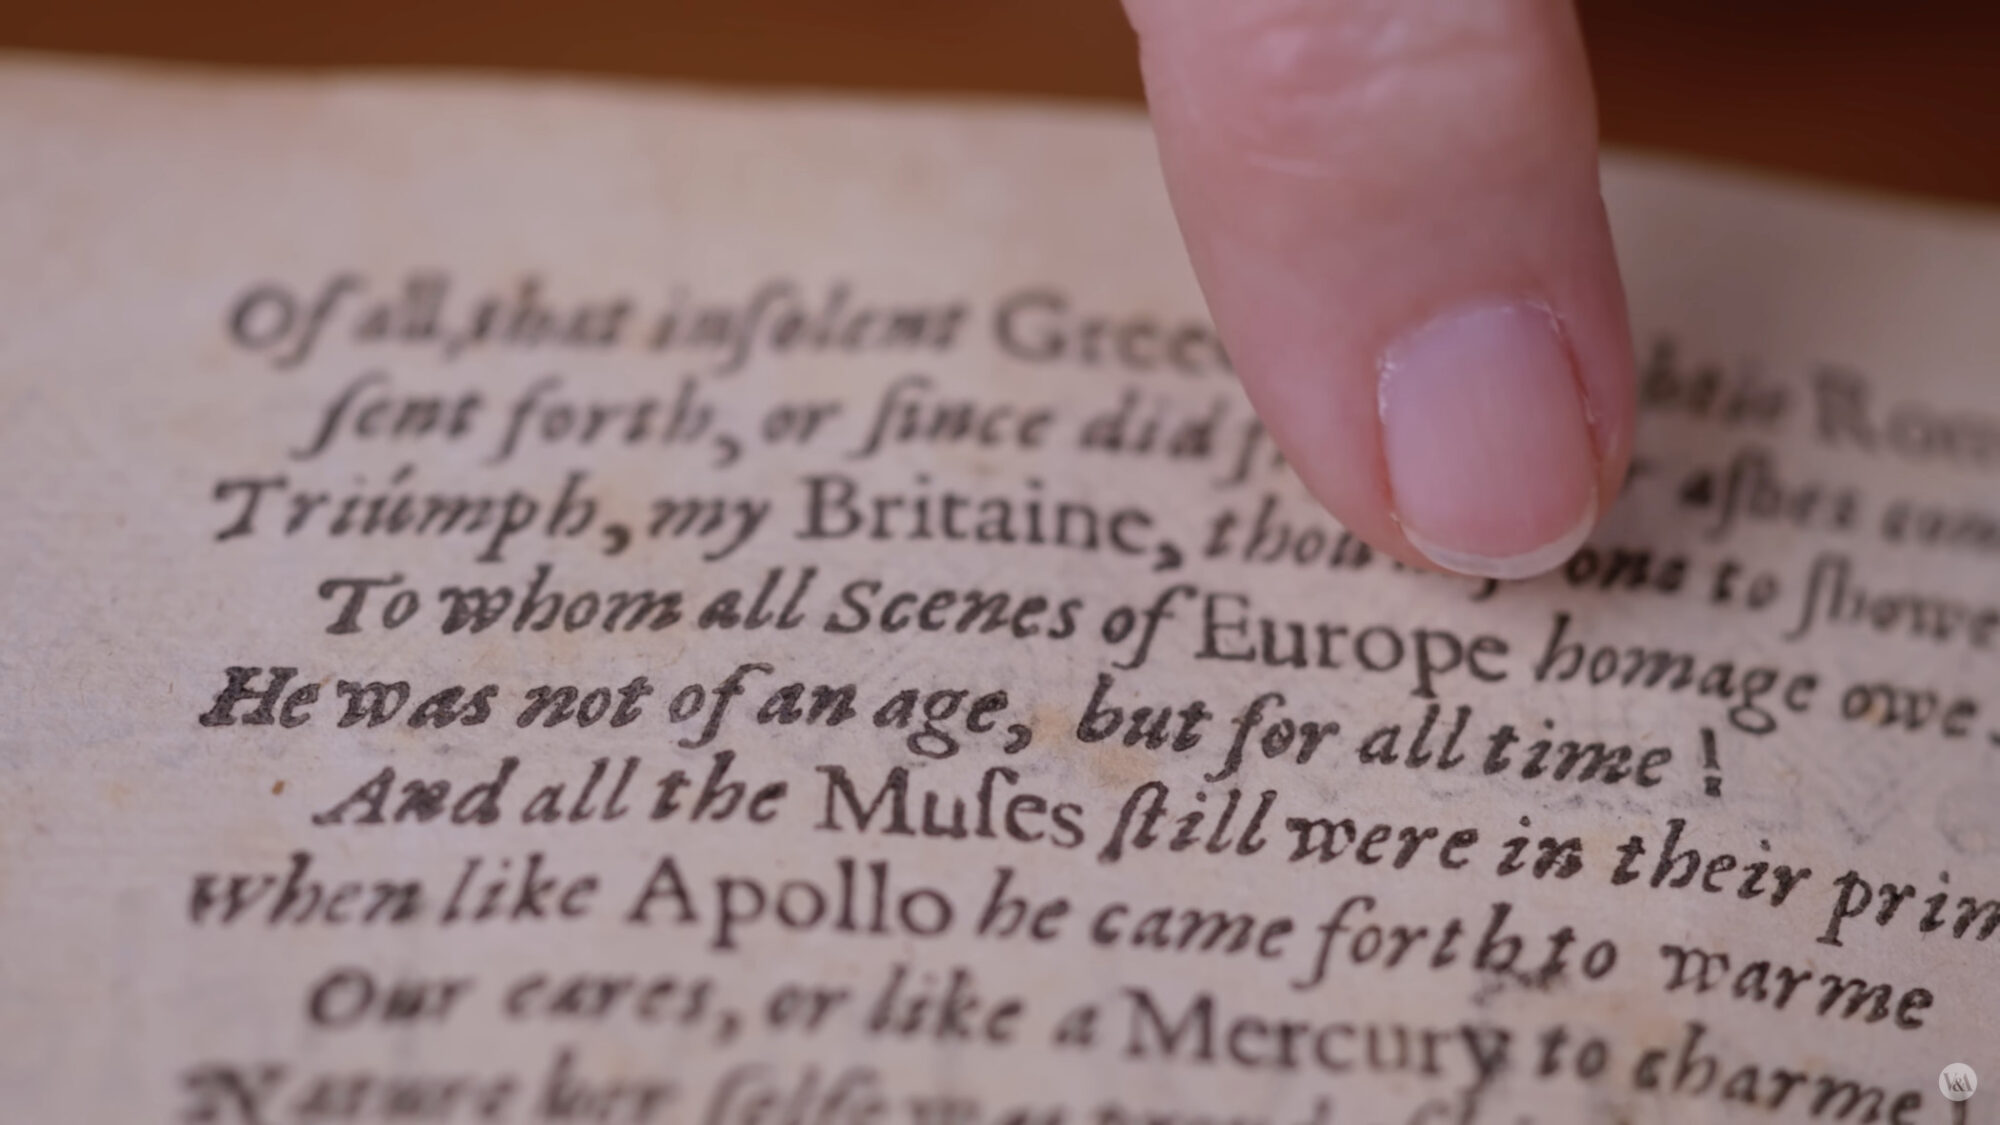 Of all, that inſolent Greec
ſent forth, or ſince did aſhes com
Triúmph, my Britaine, thou one to ſhowe
To whom all Scenes of Europe homage owe.
He was not of an age, but for all time !
And all the Muſes ſtill were in their prim
when like Apollo he came forth to warme
Our eares, or like a Mercury to charme !
Nature her ſelfe was proud
V&A